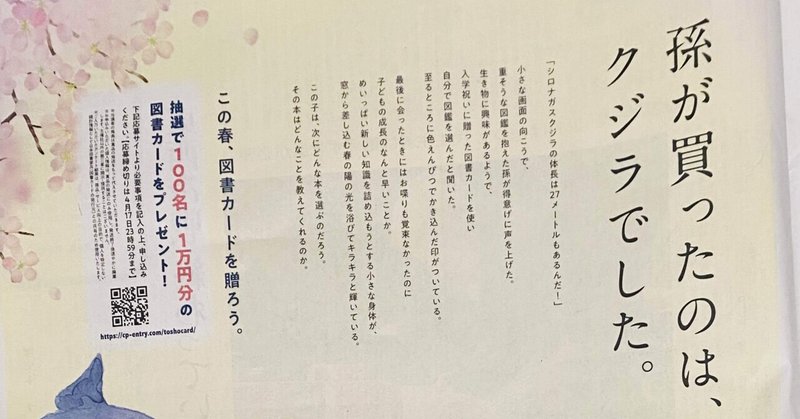 孫が買ったのは、
クジラでした。
「シロナガスクジラの体長は27メートルもあるんだ！」
小さな画面の向こうで、
重そうな図鑑を抱えた孫が得意げに声を上げた。
生き物に興味があるようで、
入学祝いに贈った図書カードを使い
自分で図鑑を選んだと聞いた。
至るところに色えんぴつでかき込んだ印がついている。
最後に会ったときにはお喋りも覚束なかったのに
子どもの成長のなんと早いことか。
めいっぱい新しい知識を詰め込もうとする小さな身体が、
窓から差し込む春の陽の光を浴びてキラキラと輝いている。
この子は、次にどんな本を選ぶのだろう。
その本はどんなことを教えてくれるのか。
この春、図書カードを贈ろう。
抽選で100名に1万円分の
図書カードをプレゼント！
下記応募サイトより必要事項を記入の上、申し込み
ください。【応募締め切りは4月17日23時59分まで】
https://cp-entry.com/toshocard/